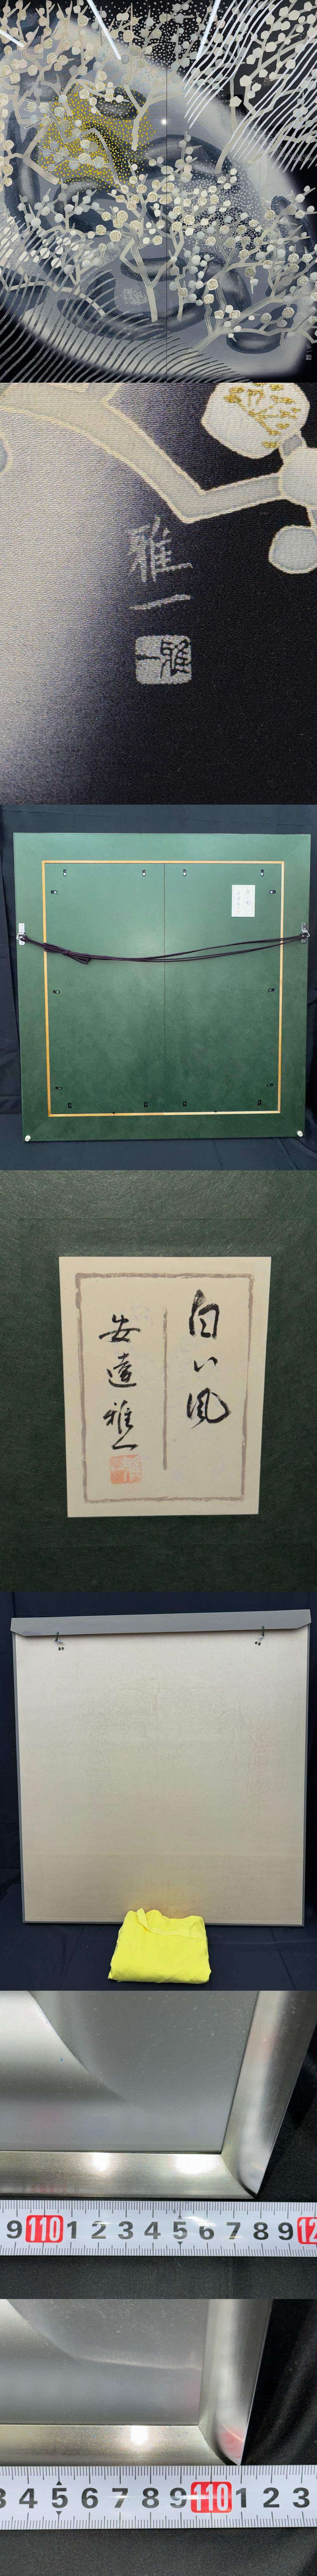 雅一
雅一
白い風
安達雅一
9 110 1 2 3 4 5 6 7 8 9 12
3 4 5 6 7 8 9 110 1 2 3